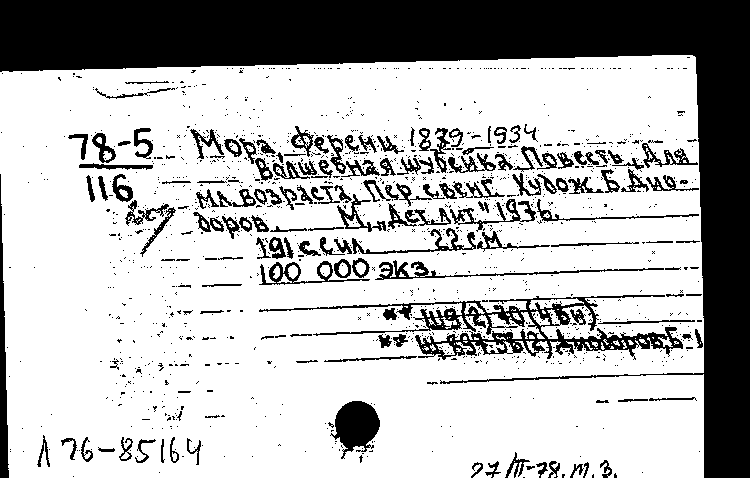 78-5
116
Мора, Ференц 1879-1934
Волшебная шубейка. Повесть. Для
мл. возраста. Пер. с венг. Худож. Б. Дио-
доров. М., „Дет. лит.", 1976.
191 с. с ил. 22 см.
100 000 экз.
** Ш9(2)70(4Вн)
** Щ 897.58(2) Диодоров, Б-1
Л 76-85164
27/III-78. т. 3.